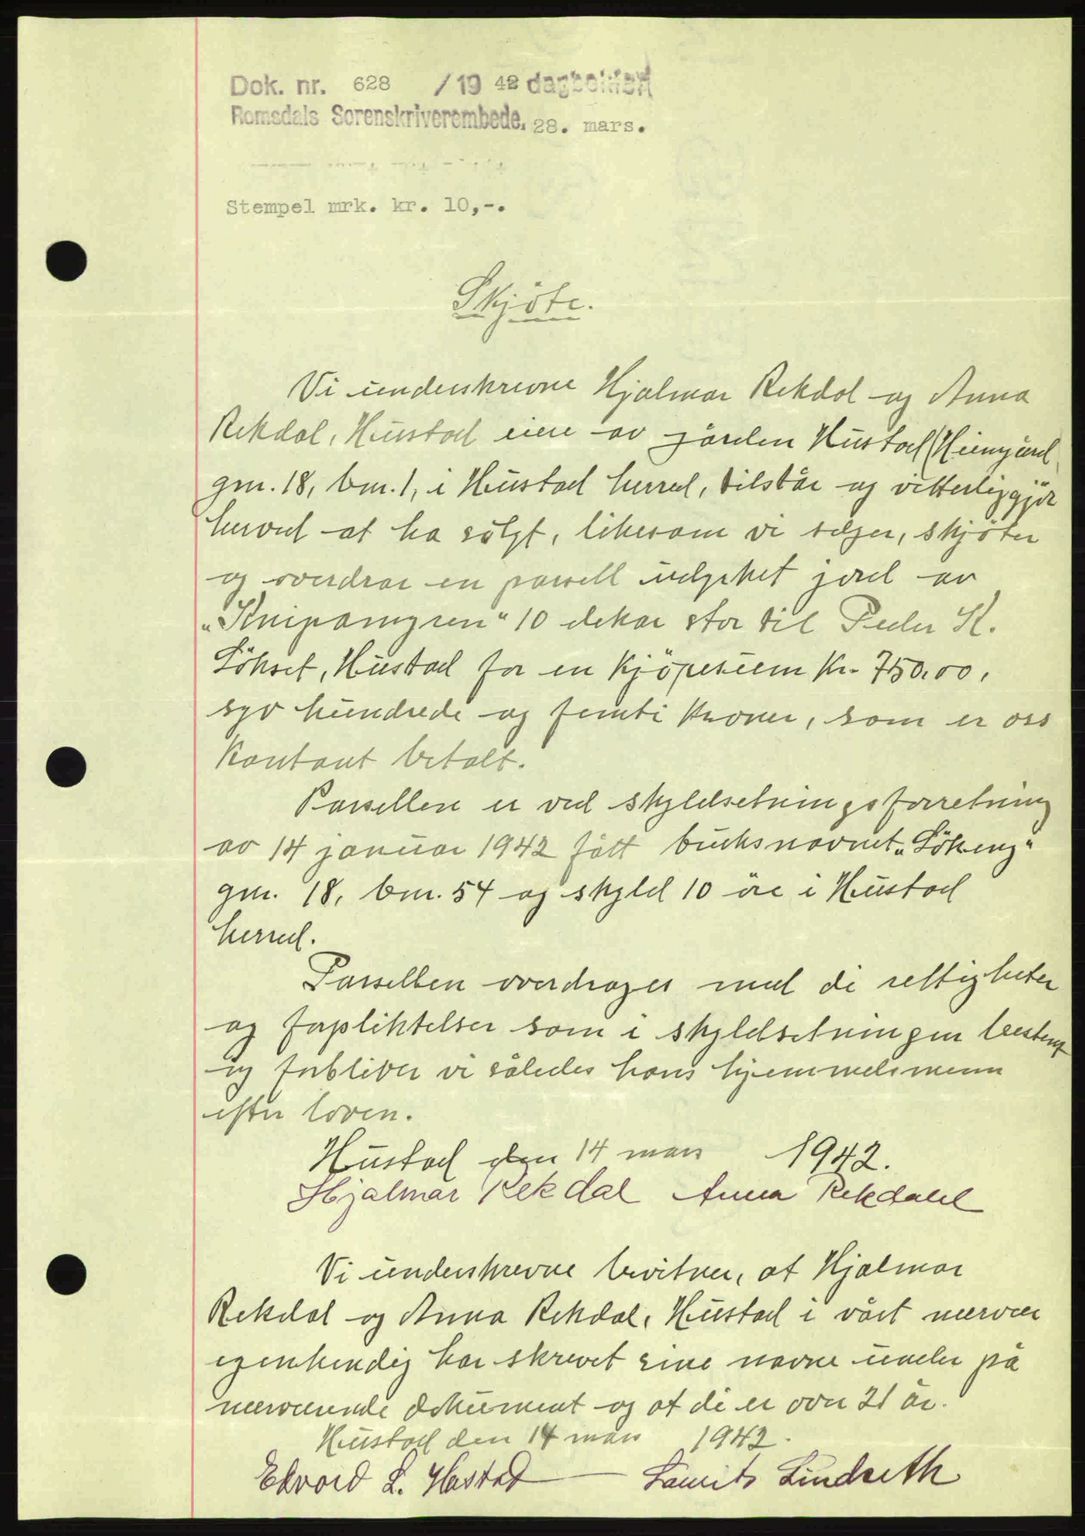 Dok. nr. 628 / 19 42 dagboken
Romsdals Sorenskriverembede. 28. mars.
Stempel mrk. kr. 10,-.
Skjöte.
Vi underskrevne Hjalmar Rekdal og Anna
Rekdal, Hustad eiere av gården Hustad (Heimgård
gnr. 18, bnr. 1, i Hustad herred, tilstår og vitterliggjör
herved at ha solgt, likesom vi selger, skjöter
og overdrar en parsell udyrket jord av
„Knipamyren" 10 dekar stor til Peder K.
Sökset, Hustad for en kjöpesum kr. 750,00,
syv hundrede og femti kroner, som er oss
kontant betalt.
Parsellen er ved skyldsetningsforretning
av 14 januar 1942 fått bruksnavnet „Sökeng"
gnr. 18, bnr. 54 og skyld 10 öre i Hustad
herred.
Parsellen overdrages med de rettigheter
og forpliktelser som i skyldsetningen bestemt
og forbliver vi således hans hjemmelsmenn
efter loven.
Hustad den 14 mars 1942.
Hjalmar Rekdal Anna Rekdahl
Vi underskrevne bevitner, at Hjalmar
Rekdal og Anna Rekdal, Hustad i vårt nærvær
egenhendig har skrevet sine navne under på
nærværende dokument og at de er over 21 år.
Hustad den 14 mars 1942.
Edvard L. Hostad Laurits Lindseth